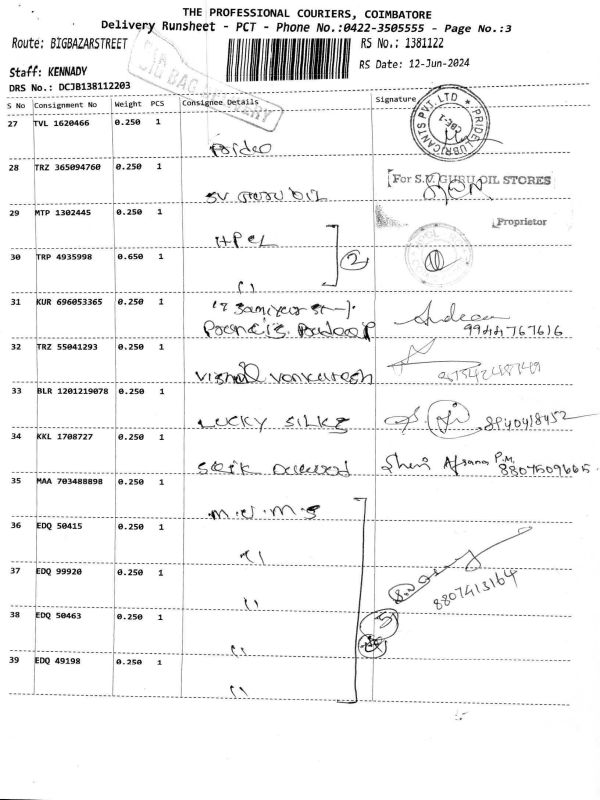 THE PROFESSIONAL COURIERS, COIMBATORE
Delivery Runsheet - PCT - Phone No.:0422-3505555 - Page No.:3
Route: BIGBAZARSTREET
RS No.: 1381122
RS Date: 12-Jun-2024
Staff: KENNADY
DRS No.: DCJB138112203
S No Consignment No Weight PCS Consignee Details Signature
PRIDE LUBRICANTS PVT. LTD
CBE-1
27 TVL 1620466 0.250 1
28 TRZ 365094760 0.250 1 SV GURU OIL
For S.V. GURU OIL STORES
Proprietor
29 MTP 1302445 0.250 1 HPCL
30 TRP 4935998 0.650 1 " 2
31 KUR 696053365 0.250 1
9944767616
32 TRZ 55041293 0.250 1 Vishal Venkatesh
33 BLR 1201219078 0.250 1 LUCKY SILKS 8940418452
34 KKL 1708727 0.250 1 8807509665
35 MAA 703488898 0.250 1 M.U.M.S
36 EDQ 50415 0.250 1 "
37 EDQ 99920 0.250 1 " 8807413164
38 EDQ 50463 0.250 1 " 5
39 EDQ 49198 0.250 1 "